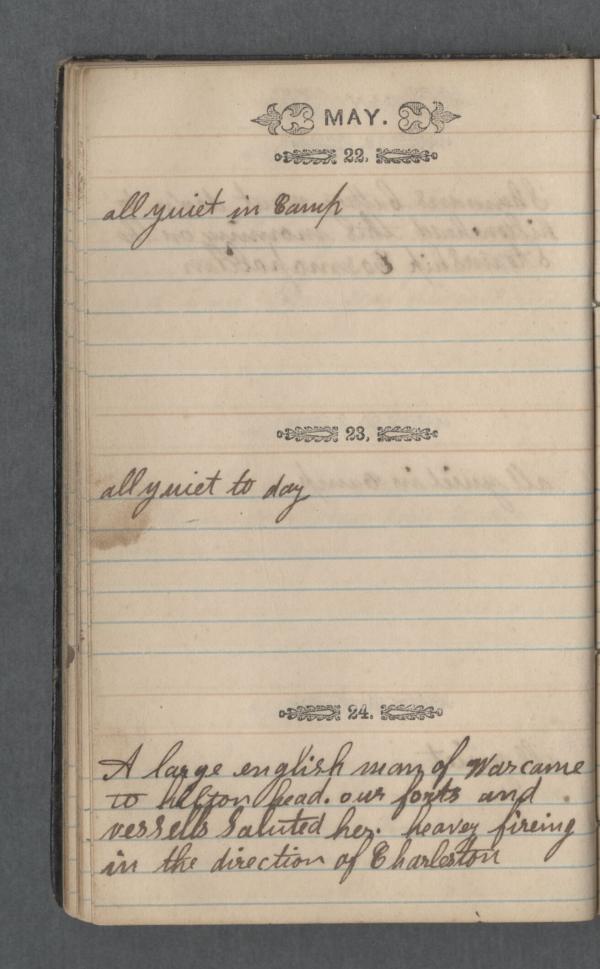 MAY.
22.
all quiet in Camp
23.
all quiet to day
24.
A large english man of War came
to hilton head. our forts and
vessells Saluted her. heavey fireing
in the direction of Charleston